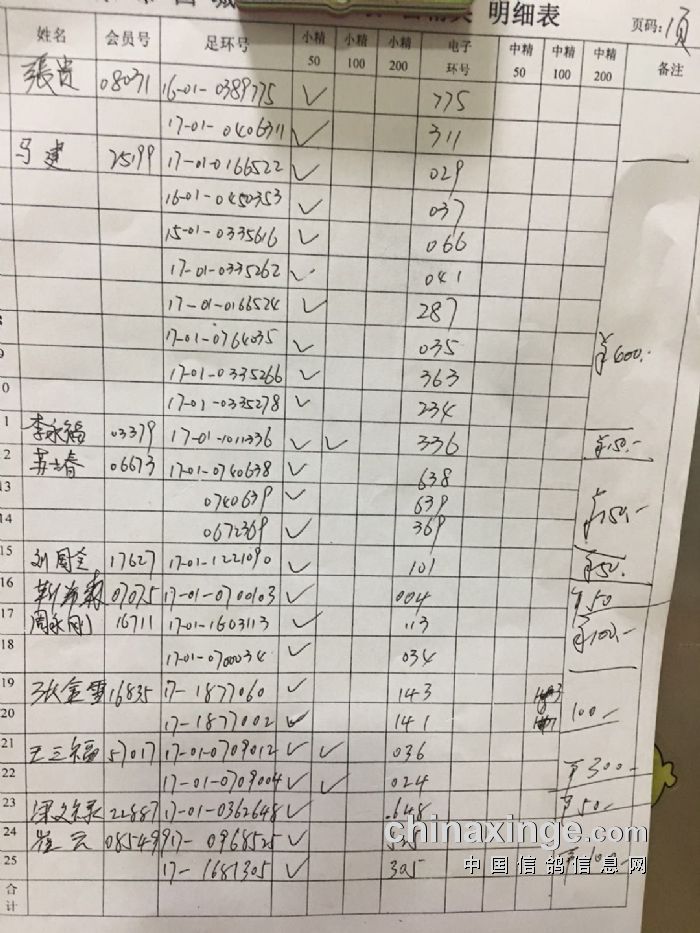 明细表
页码: 1页
姓名 会员号 足环号 小精50 小精100 小精200 电子环号 中精50 中精100 中精200 备注
張贵 08031 16-01-0389775 ✓ 775
17-01-0406311 ✓ 311
马建 25199 17-01-0166522 ✓ 029
16-01-0450353 ✓ 037
15-01-0335616 ✓ 066
17-01-0335262 ✓ 041
17-01-0166524 ✓ 287
17-01-0764035 ✓ 035 ¥600.-
17-01-0335266 ✓ 363
0 17-01-0335278 ✓ 234
1 李永福 03379 17-01-1011336 ✓ ✓ 336 ¥150.-
2 苏士春 06673 17-01-0740638 ✓ 638
13 0740639 ✓ 639 ¥150.-
14 0672369 ✓ 369
15 刘国全 17627 17-01-1221090 ✓ 101 ¥50.
16 07075 17-01-0700103 ✓ 004 ¥50
17 周永刚 16711 17-01-1603113 ✓ 113 ¥100.-
18 17-01-0700034 ✓ 034
19 张金雪 16835 17-1877060 ✓ 143
20 17-1877002 ✓ 141 100.-
21 王三福 57017 17-01-0709012 ✓ ✓ 036
22 17-01-0709004 ✓ ✓ 024 ¥300.-
23 22887 17-01-0362648 ✓ .648 ¥50.-
24 崔云 085499 17-0968525 ✓
25 17-1681305 ✓ 305 ¥100.-
合计
chinaxinge.com
中国信鸽信息网